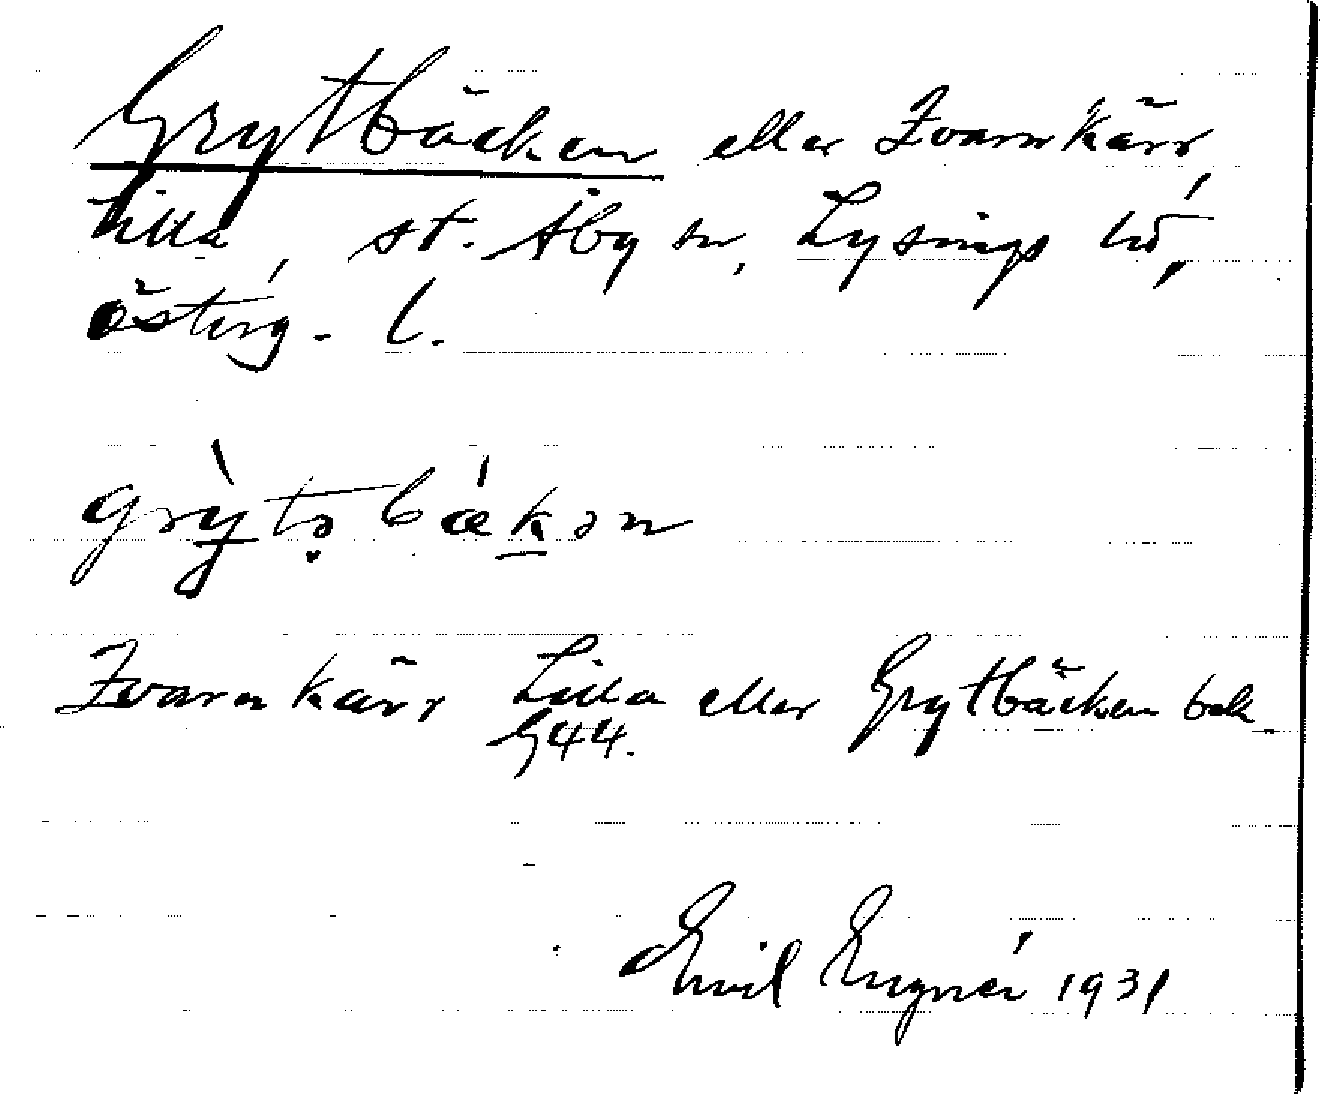 Grytbäcken eller Kvarnkärr
Lilla, St. Åby sn, Lysings hd,
Österg. l.
grỳtə bǽkən
Kvarnkärr Lilla eller Grytbäcken
G44.
Emil Engnér 1931